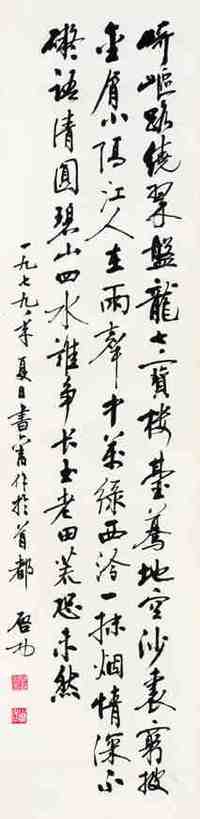 崎嶇路繞翠盤龍七寶樓臺驀地空沙裏窮披
金屑小隔江人在雨聲中萬綠西泠一抹烟情深不
礙語清圓碧山四水誰争長玉老田荒恐未然
一九七九年夏日書舊作於首都 啓功